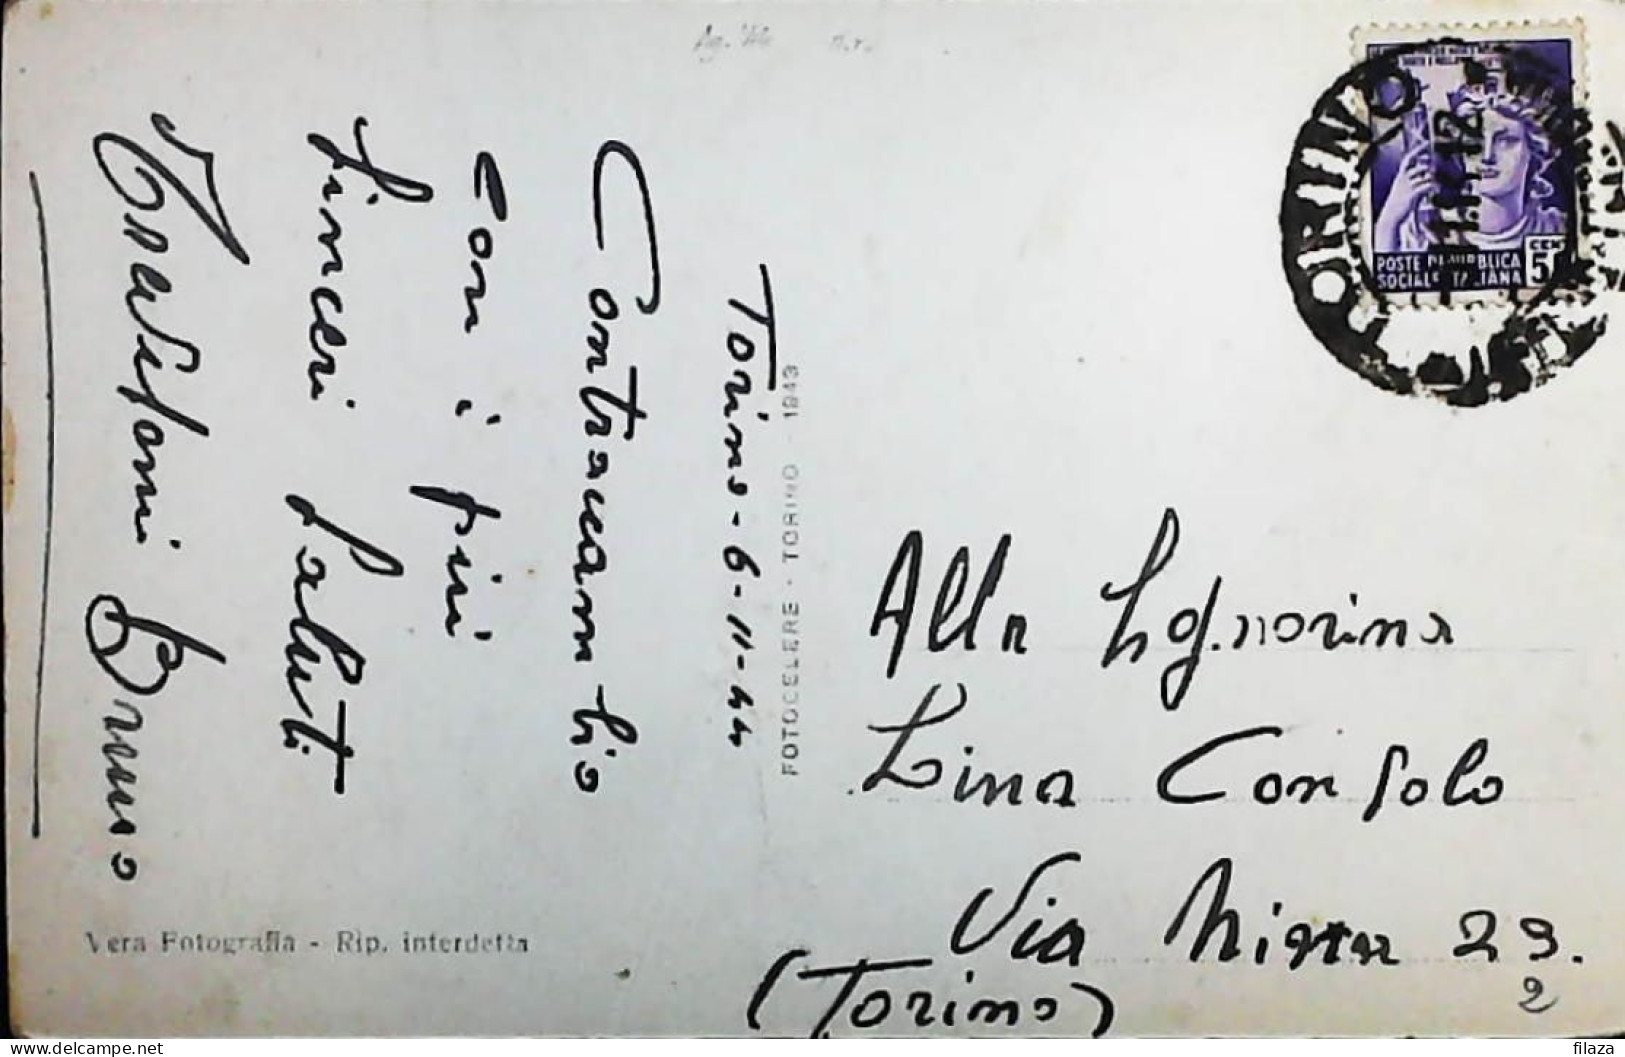 Torino - 6-11-44
Contraccambio
con i più
sinceri saluti
Bruno
FOTOCELERE - TORINO - 1943
Vera Fotografia - Rip. interdetta
TORINO
POSTE REPUBBLICA
SOCIALE ITALIANA
CENT
Alla Signorina
Lina Consolo
Via Nizza 23.
(Torino)
2
filaza